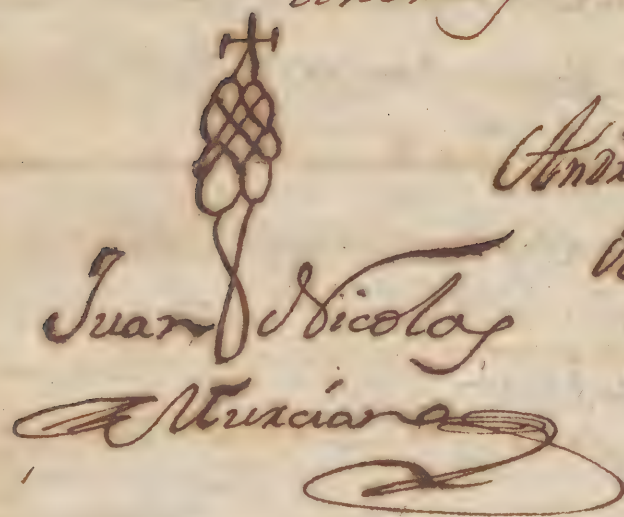 Juan Nicolas
Murciano